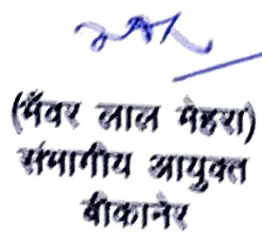 (भँवर लाल मेहरा)
संभागीय आयुक्त
बीकानेर